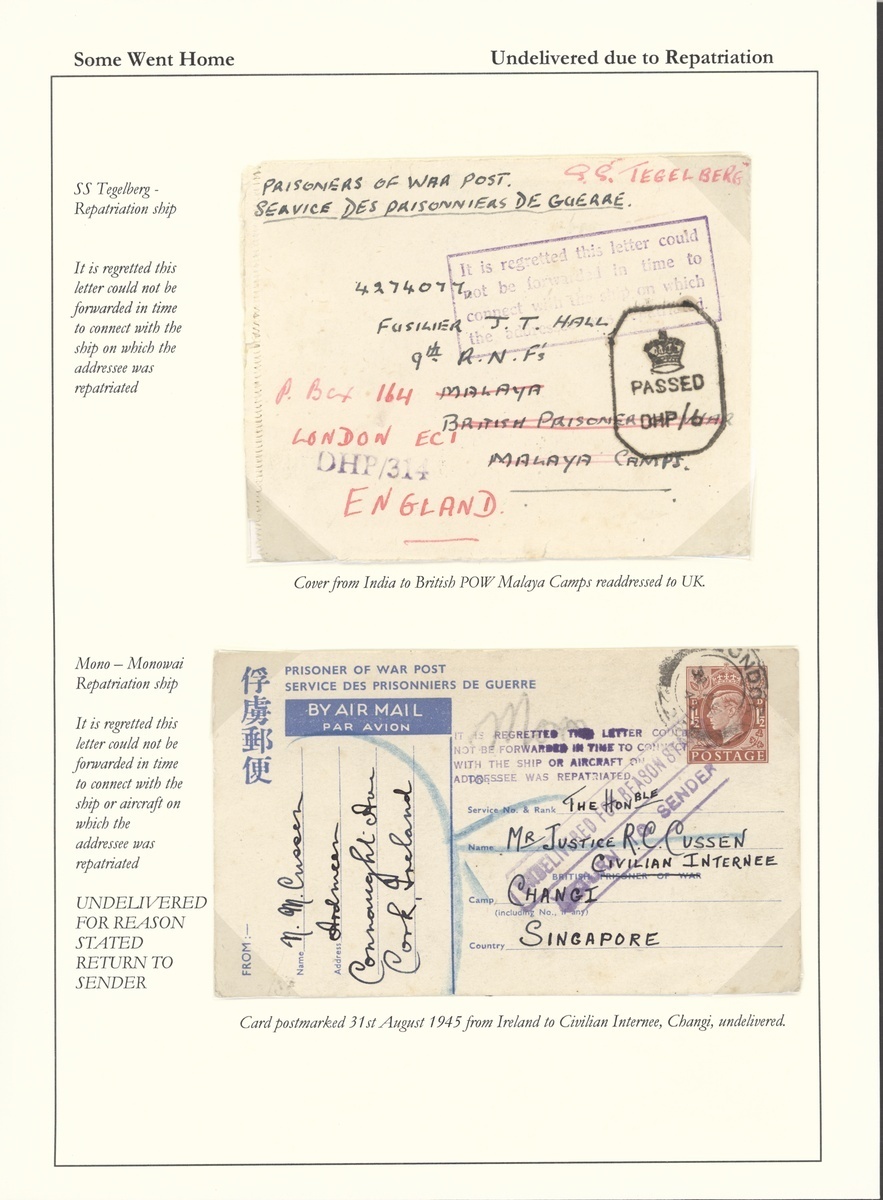 Some Went Home
Undelivered due to Repatriation
SS Tegelberg -
Repatriation ship
It is regretted this
letter could not be
forwarded in time
to connect with the
ship on which the
addressee was
repatriated
PRISONERS OF WAR POST.
SERVICE DES PRISONNIERS DE GUERRE.
S.S. TEGELBERG
It is regretted this letter could
not be forwarded in time to
connect with the ship on which
the addressee was repatriated.
4274077
FUSILIER J. T. HALL
9th R.N.F's
P. Box 164 MALAYA
BRITISH PRISONER OF WAR
LONDON EC1
MALAYA CAMPS.
DHP/314
ENGLAND.
PASSED
DHP/6
Cover from India to British POW Malaya Camps readdressed to UK.
Mono – Monowai
Repatriation ship
It is regretted this
letter could not be
forwarded in time
to connect with the
ship or aircraft on
which the
addressee was
repatriated
UNDELIVERED
FOR REASON
STATED
RETURN TO
SENDER
俘虜郵便
PRISONER OF WAR POST
SERVICE DES PRISONNIERS DE GUERRE
BY AIR MAIL
PAR AVION
Mono
IT IS REGRETTED THIS LETTER COULD
NOT BE FORWARDED IN TIME TO CONNECT
WITH THE SHIP OR AIRCRAFT ON
ADDRESSEE WAS REPATRIATED.
UNDELIVERED FOR REASON STATED
RETURN TO SENDER
POSTAGE
TO:
Service No. & Rank THE HONBLE
Name MR JUSTICE R.C. CUSSEN
CIVILIAN INTERNEE
BRITISH PRISONER OF WAR
Camp CHANGI
(including No., if any)
Country SINGAPORE
FROM:—
Name N. M. Cussen
Address Ardmeen
Connaught Ave
Cork, Ireland
Card postmarked 31st August 1945 from Ireland to Civilian Internee, Changi, undelivered.